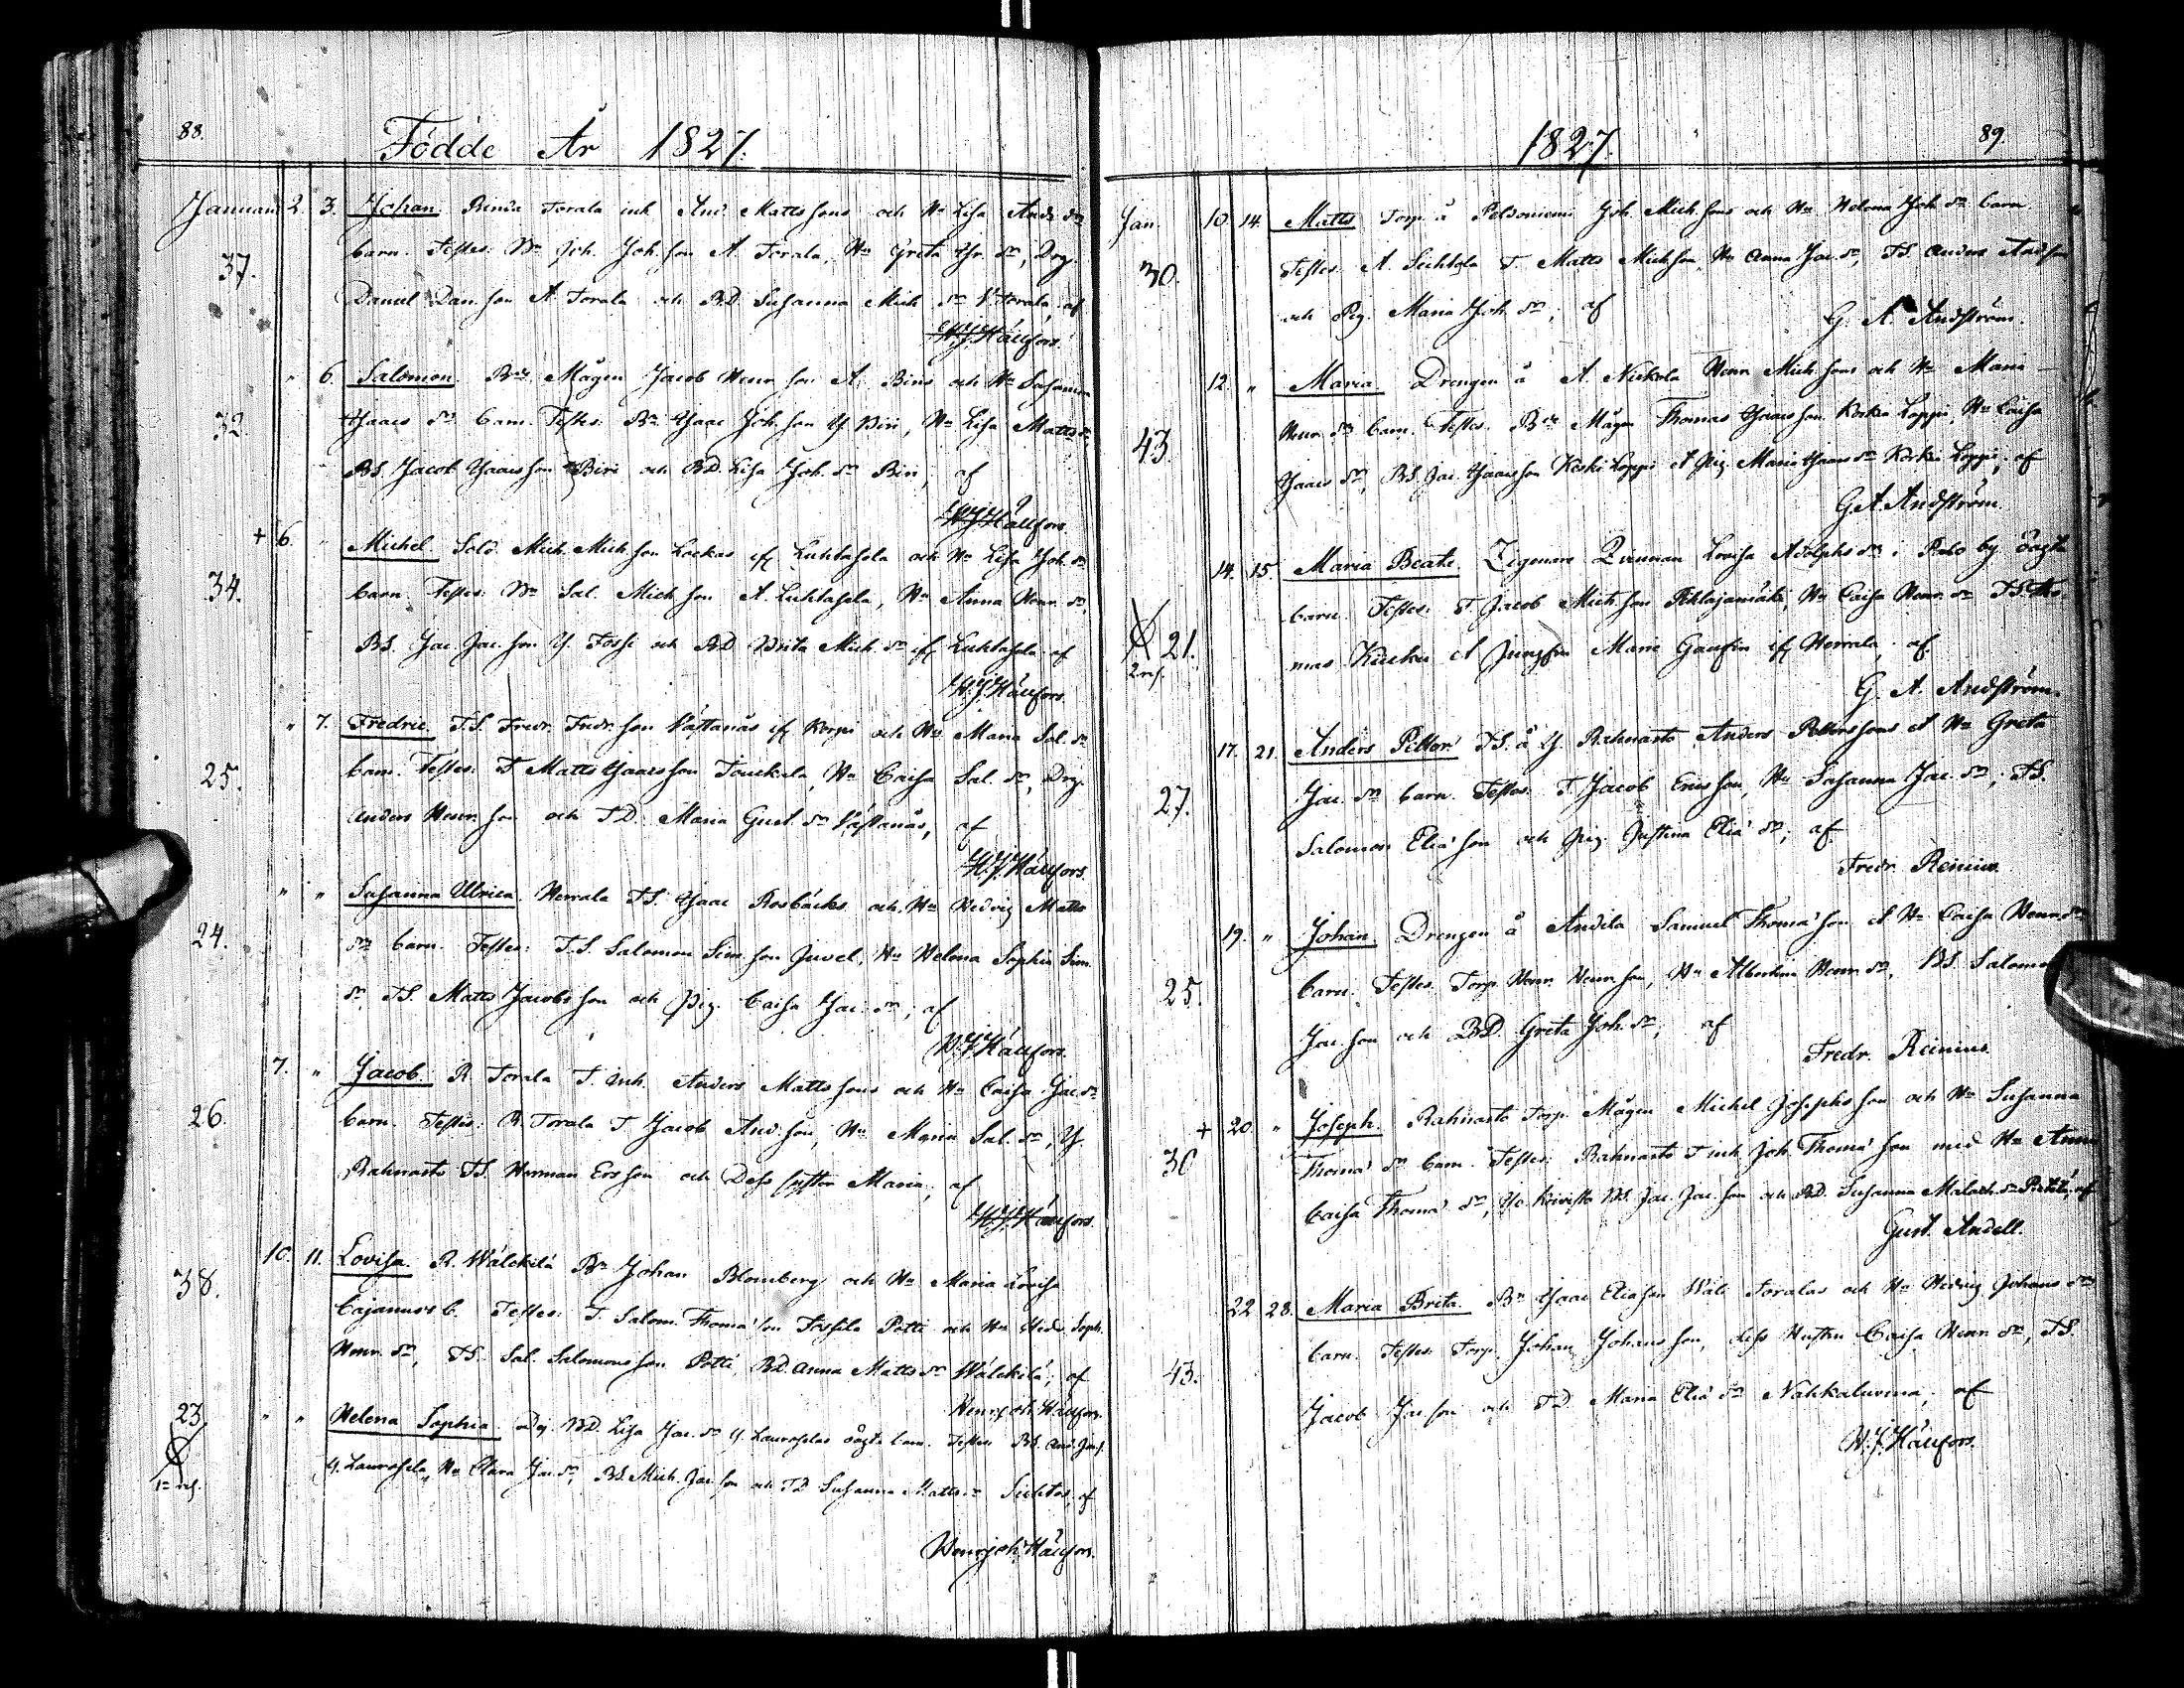 88.
Födde År 1827.
Januari 2. 3. Johan. Torala inh. And. Mattssons och Hu Lisa Ands dr
37.
barn. Testes: Bn Joh. Joh.son A. Torala, Hu Greta dr, Drg.
Daniel Dan.son A Torala och BD. Susanna Mich dr Torala, af
H.J. Hällfors.
" 6. Salomon. Mågen Jacob Henr.son A. och Hu Susanna
32.
Isaacs dr barn. Testes: Bn Isaac Joh.son Y. Hu Lisa Matts dr
BS. Jacob Isaacsson och BD. Lisa Joh. dr af
H.J. Hällfors.
+ 6. " Michel. Sold. Mich. Mich.son Lackas if Luhtasela och Hu Lisa Joh. dr
34.
barn. Testes: Bn Sal. Mich.son A. Luhtasela, Hu Anna Henr. dr,
BS. Jac. Jac.son Y. och BD Brita Mich. dr if Luhtasela af
H.J. Hällfors.
" 7. Fredric. T.S. Fredr. Fredr.son Västanås if och Hu Maria Sal. dr
25.
barn. Testes: T Matts Isaacsson Hu Caisa Sal. dr, Drg.
Anders Henr.son och T.D. Maria Gust. dr Västanås, af
H.J. Hällfors.
" " Susanna Ulrica. Herrala T.S. Isaac Rosbäcks och Hu Hedvig Matts
24.
dr barn. Testes: T.S. Salomon Sim.son Juvel, Hu Helena Sophia Sim.
dr T.S. Matts Jacobsson och Pig. Caisa Jac. dr, af
H.J. Hällfors.
7. " Jacob. R Torala T. inh. Anders Mattssons och Hu Caisa Jac. dr
26.
barn. Testes: R. Torala T Jacob And.son, Hu Maria Sal. dr, Y.
Rahnasto T.S. Herman Ersson och Dess syster Maria, af
H.J. Hällfors.
10. 11. Lovisa. R. Wälckilä Bn Johan Blomberg och Hu Maria Lovisa
38.
Cajanus b. Testes: T. Salom. Thomä son Potti och Hu Hed. Soph.
Henr. dr, T.S. Sal. Salomonsson Potti, BD. Anna Matts dr Wälckilä, af
Henr. Joh. Hällfors.
23. " " Helena Sophia. BD. Lisa Jac. dr Y. Lauroselas oägta barn. Testes: BS. And.
1=
Y. Laurosela, Hu Clara Jac. dr, BS. Mich. Jac.son och TD Susanna Matts dr af
Henr. Joh. Hällfors.
1827.
89.
Jan. 10. 14. Matts. Torp. å Peldoniemi Joh. Mich.sons och Hu Helena Joh. dr barn.
30.
Testes: A. T. Matts Mich.son, Hu Anna Jac. dr, T.S. Anders And.son
och Pig. Maria Joh. dr, af
G. A. Andström.
12. " Maria. Drengen å A. Nickola Henr. Mich.sons och Hu Maria
43.
Henr. dr barn. Testes: Mågen Thomas Isaacsson Loppi, Hu Caisa
Isaacs dr, BS. Jac. Isaacsson Loppi et Pig. Maria Isaacs dr Loppi, af
G.A. Andström.
14. 15. Maria Beata. Zigenare Qvinnan Lovisa Adolphs dr i by oägta
21.
2
barn. Testes: T. Jacob Mich.son Pihlajamäki, Hu Caisa Henr. dr T.S. Tho
mas et Jungfru Maria if Herrala, af
G. A. Andström.
17. 21. Anders Petter. T.S. å Y. Rahnasto Anders Petterssons et Hu Greta
27.
Jac. dr barn. Testes: T. Jacob Ericsson, Hu Susanna Jac. dr, T.S.
Salomon Eliä son och Pig. Justina Eliä dr, af
Fredr. Reinius.
19. " Johan. Drengen å Andila Samuel Thomä son et Hu Caisa Henr. dr
25.
barn. Testes: Torp. Henr. Henr.son, Hu Albertina Henr. dr, BS. Salomon
Jac.son och BD. Greta Joh. dr, af
Fredr. Reinius.
+ 20. " Joseph. Rahnasto Torp. Mågen Michel Josephsson och Hu Susanna
30
Thomä dr barn. Testes: Rahnasto T inh Joh. Thomä son med Hu Anna
Caisa Thomä dr, BS. Jac. Jac.son och BD. Susanna Malach. dr af
Gust. Andell.
22. 28. Maria Brita. Bn Isaac Eliasson Wäli Toralas och Hu Hedvig Johans dr
43.
barn. Testes: Torp. Johan Johansson, dess Hustru Caisa Henr. dr, T.S.
Jacob Jac.son och T.D Maria Eliä dr Nahkaluoma, af
H.J. Hällfors.